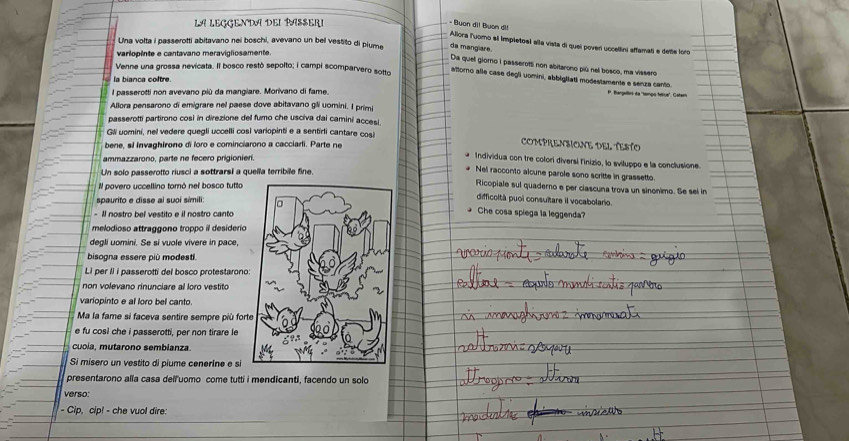 LA LEGGENDA DEI PASSERI
Una volta i passerotti abitavano nei boschi, avevano un bel vestito di piume
variopinte e cantavano meravigliosamente.
Venne una grossa nevicata. Il bosco restò sepolto; i campi scomparvero sotto
la bianca coltre.
I passerotti non avevano più da mangiare. Morivano di fame.
Allora pensarono di emigrare nel paese dove abitavano gli uomini. I primi
passerotti partirono così in direzione del fumo che usciva dai camini accesi.
Gli uomini, nel vedere quegli uccelli così variopinti e a sentirli cantare così
bene, si invaghirono di loro e cominciarono a cacciarli. Parte ne
ammazzarono, parte ne fecero prigionieri.
Un solo passerotto riuscì a sottrarsi a quella terribile fine.
Il povero uccellino tornò nel bosco tutto
spaurito e disse ai suoi simili:
- Il nostro bel vestito e il nostro canto
melodioso attraggono troppo il desiderio
degli uomini. Se si vuole vivere in pace,
bisogna essere più modesti.
Lì per lì i passerotti del bosco protestarono:
non volevano rinunciare al loro vestito
variopinto e al loro bel canto.
Ma la fame si faceva sentire sempre più forte
e fu così che i passerotti, per non tirare le
cuoia, mutarono sembianza.
Si misero un vestito di piume cenerine e si
presentarono alla casa dell'uomo come tutti i mendicanti, facendo un solo
verso:
- Cip, cip! - che vuol dire:
- Buon dì! Buon dì!
Allora l'uomo si impietosì alla vista di quei poveri uccellini affamati e dette loro
da mangiare.
Da quel giorno i passerotti non abitarono più nel bosco, ma vissero
attorno alle case degli uomini, abbigliati modestamente e senza canto.
P. Bargellini da "tempo felice"
COMPRENSIONE DEL TESTO
Individua con tre colori diversi l'inizio, lo sviluppo e la conclusione.
Nel racconto alcune parole sono scritte in grassetto.
Ricopiale sul quaderno e per ciascuna trova un sinonimo. Se sei in
difficoltà puoi consultare il vocabolario.
Che cosa spiega la leggenda?
variopinte = colorate cenerine = grigio
coltre = coperta mendicanti = povero
si invaghirono = innamorati
sottrarsi =
attraggono = attirano
modesti =